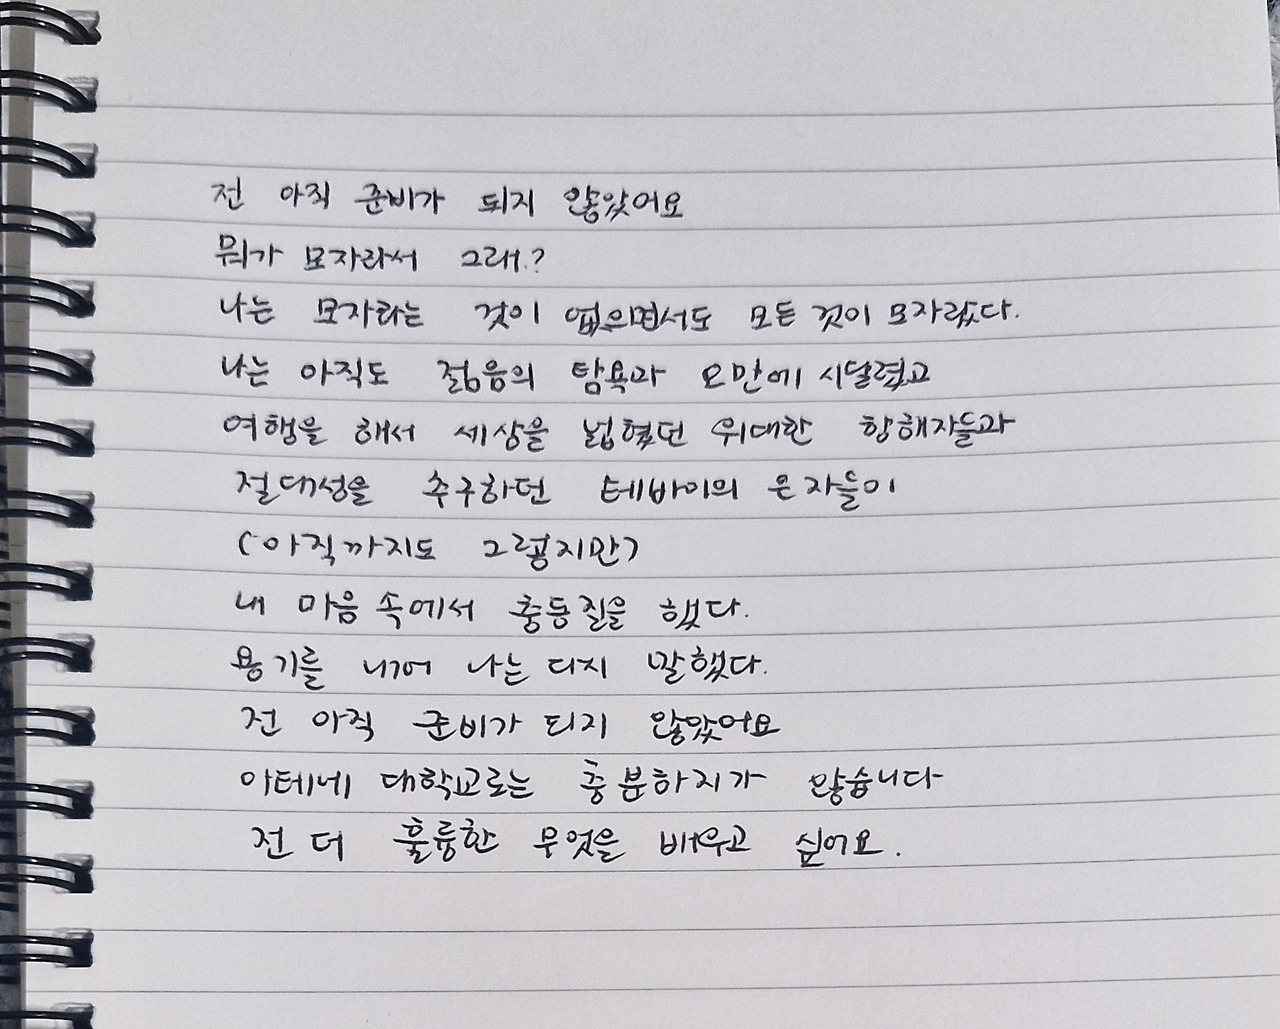 전 아직 준비가 되지 않았어요
뭐가 모자라서 그래.?
나는 모자라는 것이 없으면서도 모든 것이 모자랐다.
나는 아직도 젊음의 탐욕과 오만에 시달렸고
여행을 해서 세상을 넓혔던 위대한 항해자들과
절대성을 추구하던 테바이의 은자들이
(아직까지도 그렇지만)
내 마음 속에서 충동질을 했다.
용기를 내어 나는 다시 말했다.
전 아직 준비가 되지 않았어요
아테네 대학교로는 충분하지가 않습니다
전 더 훌륭한 무엇을 배우고 싶어요.